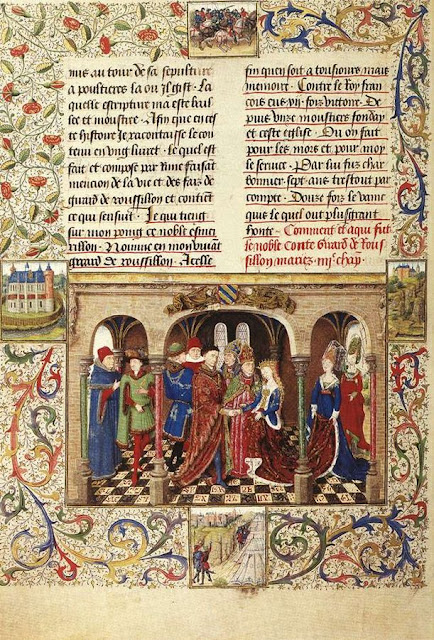 mis au tour de sa sepulture
a poultieres la ou il gist. La
quelle escripture ma este bail
lee et monstree. Afin que en ces
te histoire Je racontaisse le con
tenu en ung liuret. Le quel est
fait et compose par rime faisant
mencion de la vie et des fais de
guerard de roussillon et contient
ce qui sensuit. Je qui tieng
sur mon poing ce noble esmeri
rillon. Nomme en mon viuant
gerard de roussillon. Acelle
fin quen soit a tousiours mais
memoire. Contre le Roy fran
cois eus vii foiz victoire. De
puis unze moustiers fonday
et ceste eglise. Ou on fait
pour les mors et pour moy
le seruice. Par lui fus char
bonnier sept ans trestout par
compte. Douze foiz le vain
quis le quel out plus grant
honte. Comment et a qui fut
le noble Conte Girard de Rous
sillon mariez. iii.e chap.